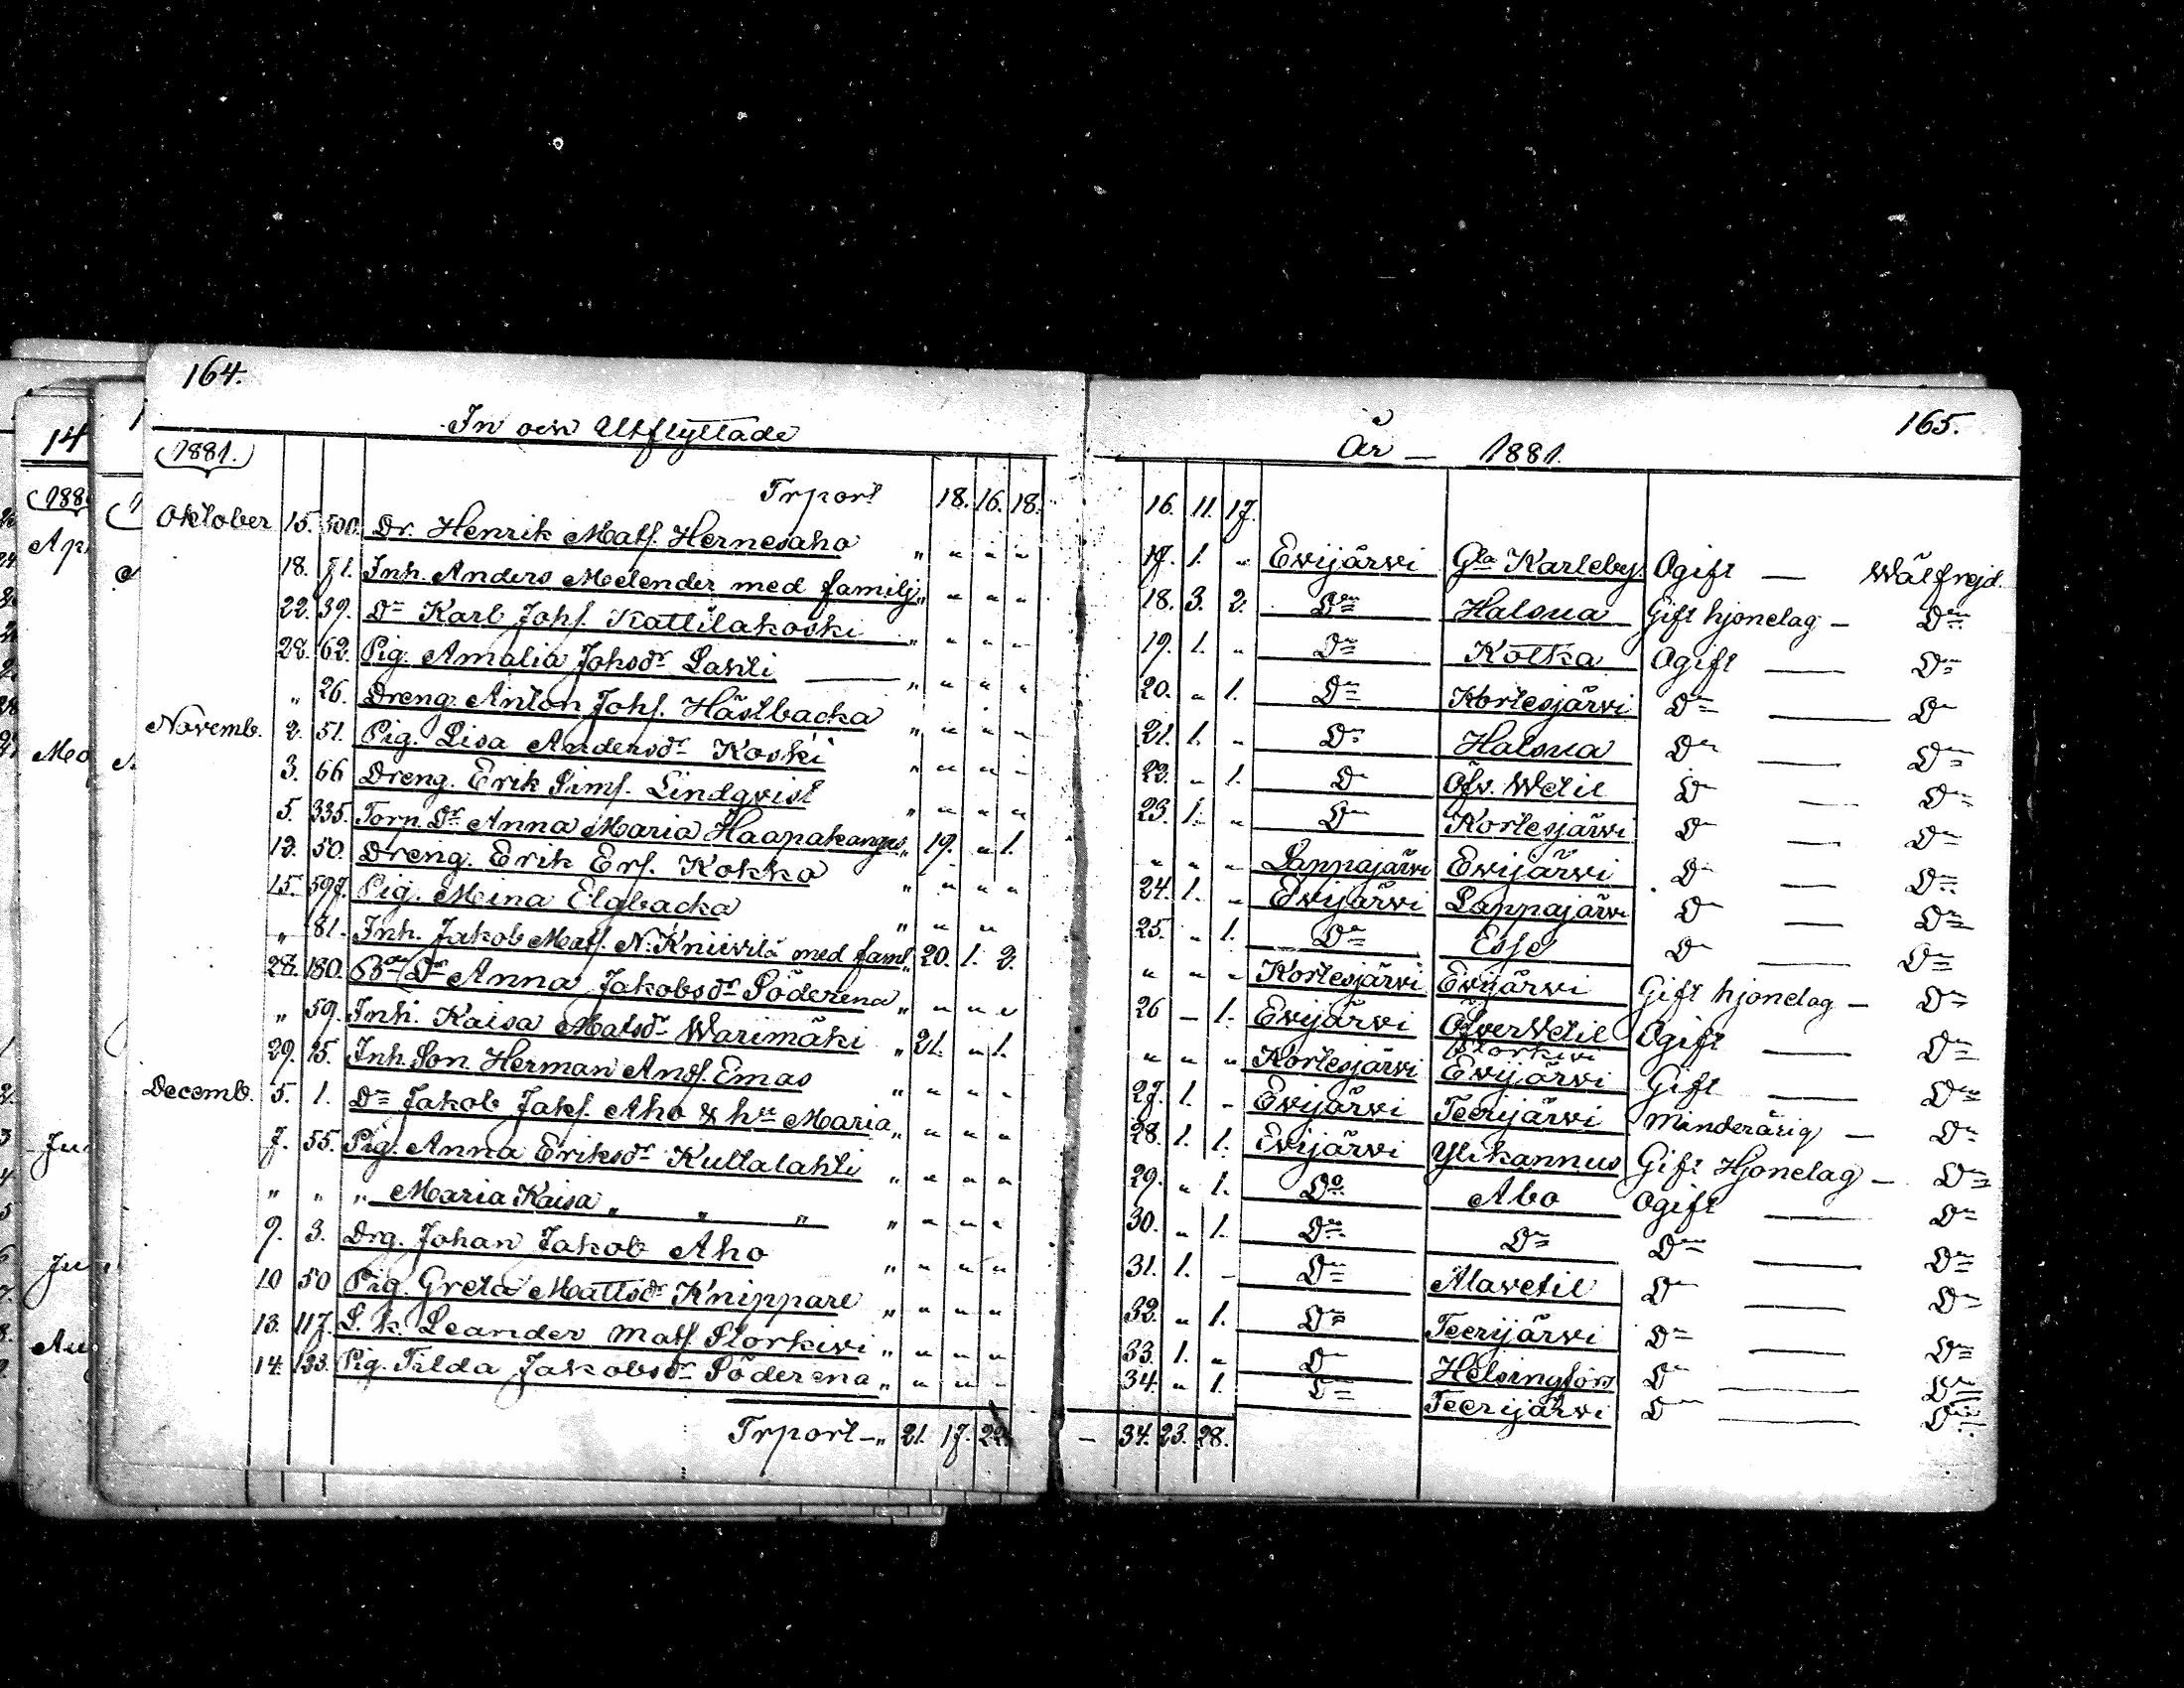 164.
In och Utflyttade
1881.
Trport 18. 16. 18.
Oktober 15. 500. Dr. Henrik Mats. Hernesaho " " " "
18. 71. Inh. Anders Melender med familj " " " "
22. 39. Dn Karl Johs. Kattilakoski " " " "
28. 62. Pig. Amalia Johsdr Lahti — " " " "
" 26. Dreng Anton Johs. Hästbacka " " " "
Novemb. 2. 51. Pig. Lisa Andersdr Koski " " " "
3. 66 Dreng. Erik Sims. Lindqvist " " " "
5. 335. Torp. Dr Anna Maria Haapakangas " 19. " 1.
12. 50. Dreng. Erik Ers. Kokko " " " "
15. 597. Pig. Mina Elgbacka " " " "
" 81. Inh. Jakob Mats. N. Kniivilä med famil " 20. 1. 2.
28. 180. Bon Dr Anna Jakobsdr Söderena " " " "
" 59. Inh. Kaisa Matsdr Warimäki " 21. " 1.
29. 15. Inh. Son. Herman Ands. Emas " " " "
Decemb. 5. 1. Dn Jakob Jaks. Aho & hu Maria " " " "
7. 55. Pig. Anna Eriksdr Kultalahti " " " "
" " " Maria Kaisa " " " " " " "
9. 3. Drg. Johan Jakob Aho " " " "
10 50 Pig. Greta Mattsdr Knippare " " " "
13. 117. S. k. Leander Mats. Storkivi " " " "
14. 133. Pig. Tilda Jakobsdr Söderena " " " "
Trport — " 21. 17. 22.
165.
År — 1881.
16. 11. 17.
17. 1. " Evijärvi Gla Karleby. Ogift — Wälfrejd.
18. 3. 2. Dn Halsua Gift hjonelag — Dn
19. 1. " Dn Kotka Ogift — Dn
20. " 1. Dn Kortesjärvi Dn — Dn
21. 1. " Dn Halsua Dn — Dn
22. " 1. Dn Öfv. Wetil Dn — Dn
23. 1. " Dn Kortesjärvi Dn — Dn
" " " Lappajärvi Evijärvi Dn — Dn
24. 1. " Evijärvi Lappajärvi Dn — Dn
25. " 1. Dn Esse Dn — Dn
" " " Kortesjärvi Evijärvi Gift hjonelag — Dn
26 — 1. Evijärvi Öfver Wetil Ogift — Dn
Storkivi
" " " Kortesjärvi Evijärvi Gift — Dn
27. 1. " Evijärvi Teerijärvi Minderårig — Dn
28. 1. 1. Evijärvi Ylikannus Gift Hjonelag — Dn
29. " 1. Do Abo Ogift — Dn
30. " 1. Dn Dn Dn — Dn
31. 1. — Dn Alavetil Dn — Dn
32. " 1. Dn Teerijärvi Dn — Dn
33. 1. " Dn Helsingfors Dn — Dn
34. " 1. Dn Teerijärvi Dn — Dn
— 34. 23. 28.
14
Ap